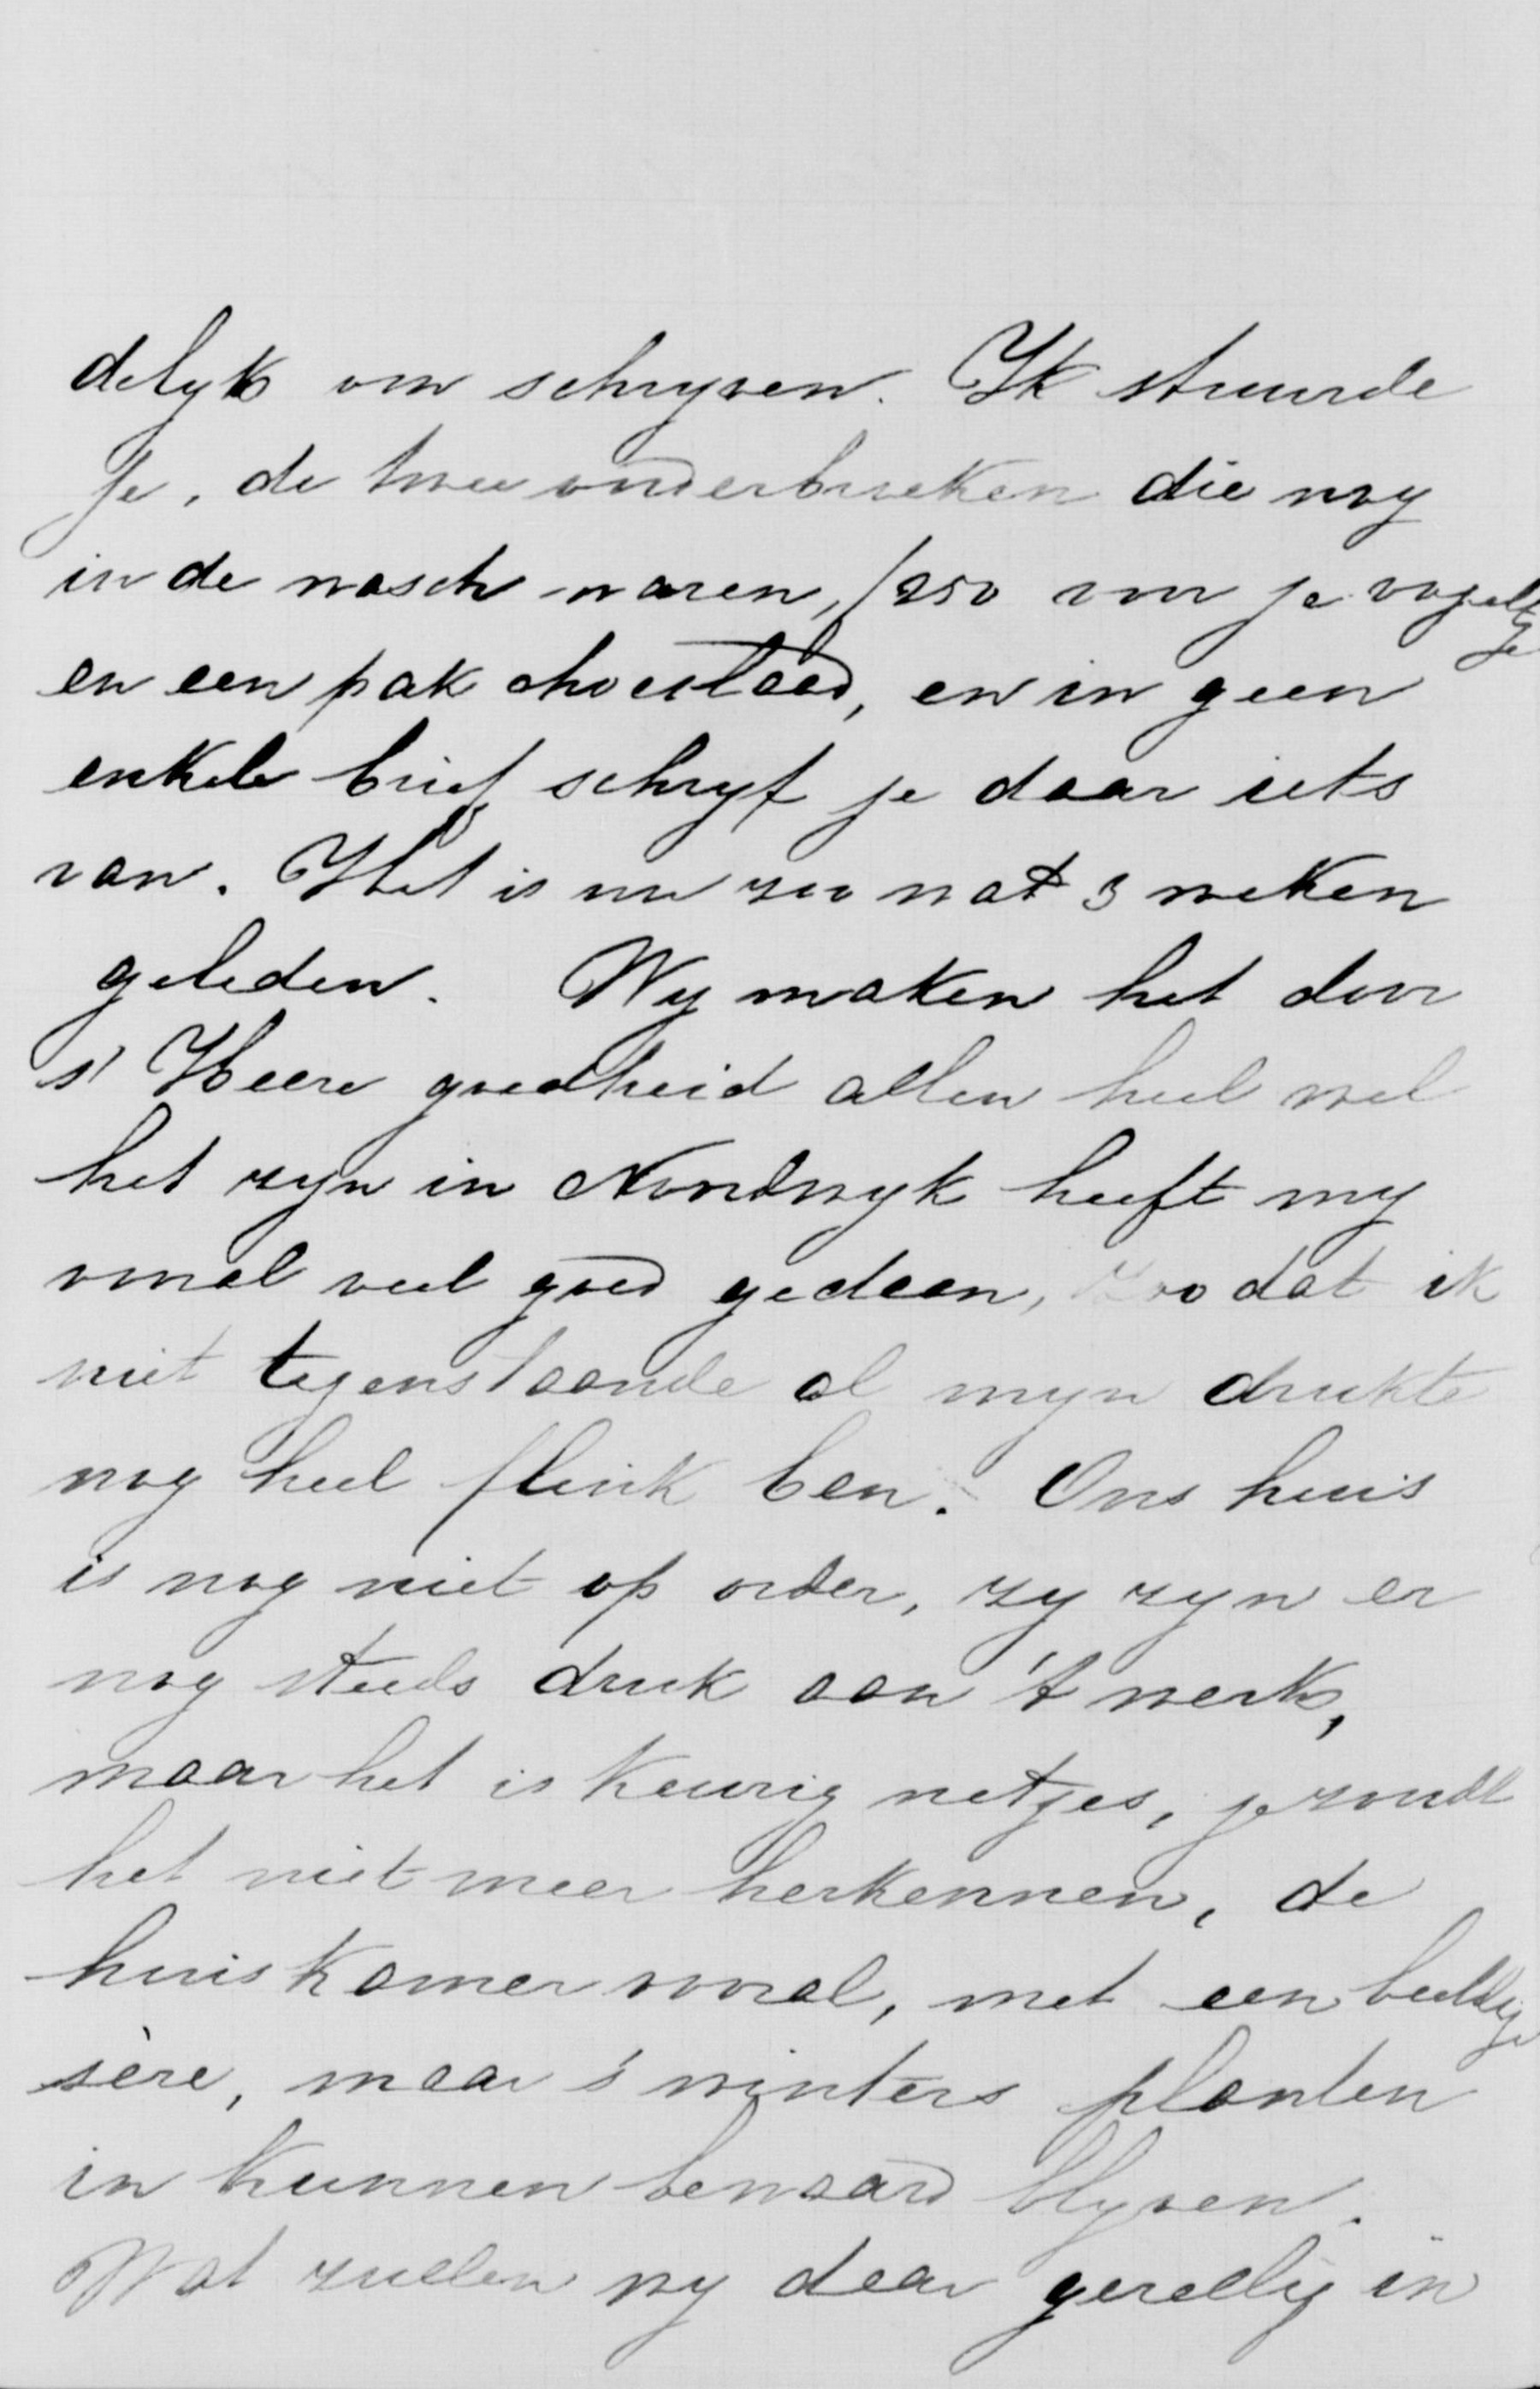 delyk om schryven. Ik stuurde
je, de twee onderbroeken die nog
in de wasch waren, f250 voor je vogeltje
en een pak chocolaad, en in geen
enkele brief schryf je daar iets
van. Het is nu zoo wat 3 weken
geleden. Wy maken het door
s' Heere goedheid allen heel wel
het zyn in Noordwyk heeft my
vooral veel goed gedaan, zoo dat ik
niet tegenstaande al myn drukte
nog heel flink ben. Ons huis
is nog niet op order, zy zyn er
nog steeds druk aan 't werk,
maar het is keurig netjes, je zoudt
het niet meer herkennen, de
huiskamer vooral, met een beeldige
sère, waar s' winters planten
in kunnen bewaard blyven.
Wat zullen wy daar gezellig in